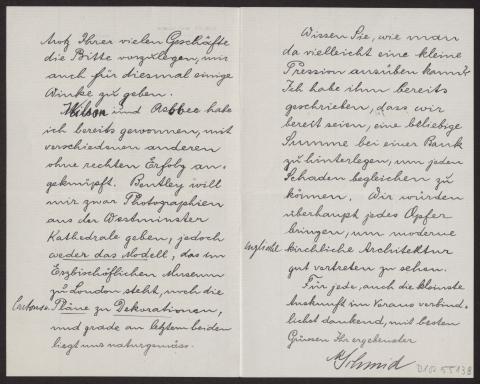 trotz Ihrer vielen Geschäfte
die Bitte vorzulegen, mir
auch für diesmal einige
Winke zu geben.
Wilson und Rabbee habe
ich bereits gewonnen, mit
verschiedenen anderen
ohne rechten Erfolg an-
geknüpft. Bentley will
mir zwar Photographien
aus der Westminster
Kathedrale geben, jedoch
weder das Modell, das im
Erzbischöflichen Museum
zu London steht, noch die
Pläne zu Dekorationen,
und grade an letztern beiden
liegt uns naturgemäss.
Wissen Sie, wie man
da vielleicht eine kleine
Pression ausüben kann?
Ich habe ihm bereits
geschrieben, dass wir
bereit seien, eine beliebige
Summe bei einer Bank
zu hinterlegen, um jeden
Schaden begleichen zu
können. Wir würden
überhaupt jedes Opfer
bringen, um moderne
englische kirchliche Architektur
gut vertreten zu sehen.
Für jede, auch die kleinste
Auskunft im Voraus verbind-
lichst dankend, mit besten
Grüssen Ihr ergebenster
Schmid